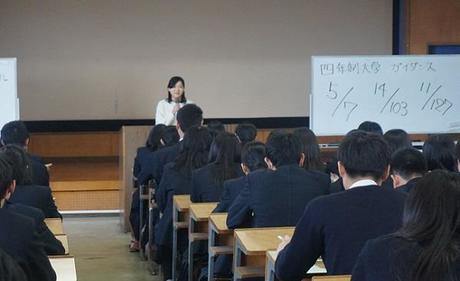 四年制大学 ガイダンス
5/7 14/103 11/127